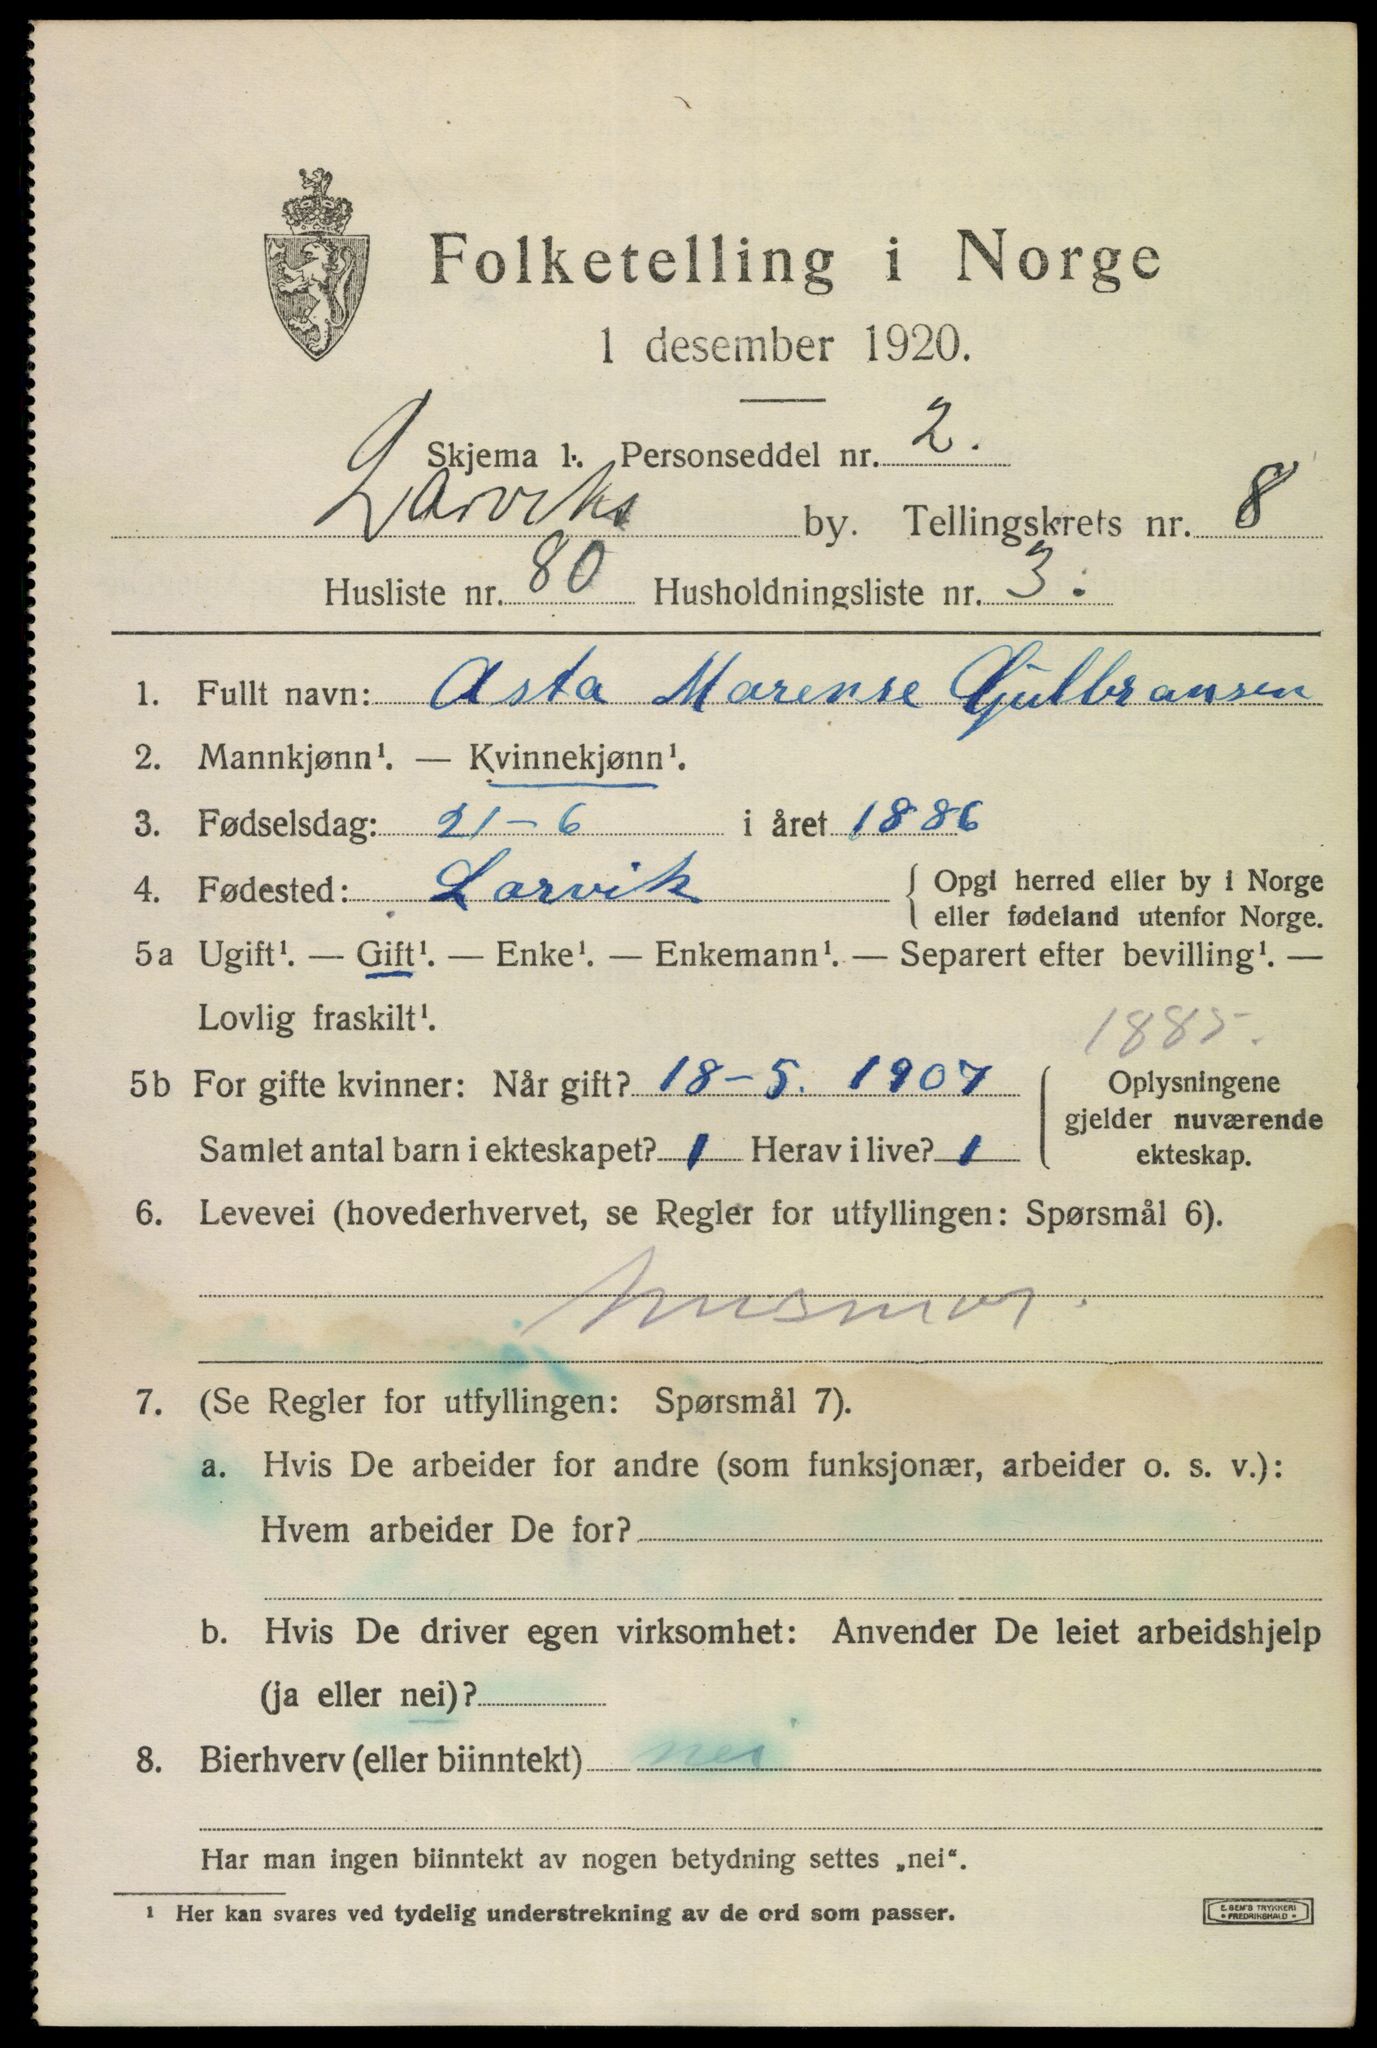 Folketelling i Norge
1 desember 1920.
Skjema 1. Personseddel nr. 2.
Larviks by. Tellingskrets nr. 8
Husliste nr. 80 Husholdningsliste nr. 3.
1. Fullt navn: Asta Marense Gulbransen
2. Mannkjønn¹. — Kvinnekjønn¹.
3. Fødselsdag: 21-6 i året 1886
4. Fødested: Larvik { Opgi herred eller by i Norge
eller fødeland utenfor Norge.
5a Ugift¹. — Gift¹. — Enke¹. — Enkemann¹. — Separert efter bevilling¹. —
Lovlig fraskilt¹.
1885.
5b For gifte kvinner: Når gift? 18-5. 1907 { Oplysningene
gjelder nuværende
Samlet antal barn i ekteskapet? 1 Herav i live? 1 ekteskap.
6. Levevei (hovederhvervet, se Regler for utfyllingen: Spørsmål 6).
husmor.
7. (Se Regler for utfyllingen: Spørsmål 7).
a. Hvis De arbeider for andre (som funksjonær, arbeider o. s. v.):
Hvem arbeider De for?
b. Hvis De driver egen virksomhet: Anvender De leiet arbeidshjelp
(ja eller nei)?
8. Bierhverv (eller biinntekt) nei
Har man ingen biinntekt av nogen betydning settes „nei“.
¹ Her kan svares ved tydelig understrekning av de ord som passer.
E. SEM'S TRYKKERI
• FREDRIKSHALD •